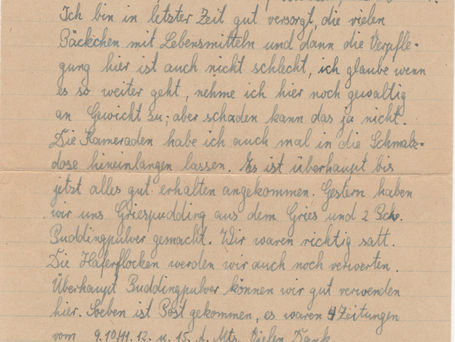 Ich bin in letzter Zeit gut versorgt, die vielen
Päckchen mit Lebensmitteln und dann die Verpfle-
gung hier ist auch nicht schlecht, ich glaube wenn
es so weiter geht, nehme ich hier noch gewaltig
an Gewicht zu; aber schaden kann das ja nicht.
Die Kameraden habe ich auch mal in die Schmalz-
dose hineinlangen lassen. Es ist überhaupt bis
jetzt alles gut erhalten angekommen. Gestern haben
wir uns Griespudding aus dem Gries und 2 Pck.
Puddingpulver gemacht. Wir waren richtig satt.
Die Haferflocken werden wir auch noch verwerten.
Überhaupt Puddingpulver können wir gut verwenden
hier. Soeben ist Post gekommen, es waren 4 Zeitungen
vom 9. 10/11. 12. u. 15. d. Mts. Vielen Dank